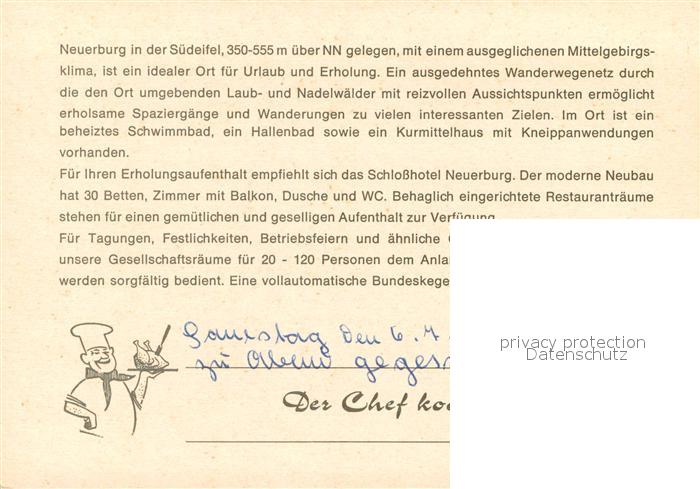 Neuerburg in der Südeifel, 350-555 m über NN gelegen, mit einem ausgeglichenen Mittelgebirgs-
klima, ist ein idealer Ort für Urlaub und Erholung. Ein ausgedehntes Wanderwegenetz durch
die den Ort umgebenden Laub- und Nadelwälder mit reizvollen Aussichtspunkten ermöglicht
erholsame Spaziergänge und Wanderungen zu vielen interessanten Zielen. Im Ort ist ein
beheiztes Schwimmbad, ein Hallenbad sowie ein Kurmittelhaus mit Kneippanwendungen
vorhanden.
Für Ihren Erholungsaufenthalt empfiehlt sich das Schloßhotel Neuerburg. Der moderne Neubau
hat 30 Betten, Zimmer mit Balkon, Dusche und WC. Behaglich eingerichtete Restauranträume
stehen für einen gemütlichen und geselligen Aufenthalt zur Verfügung
Für Tagungen, Festlichkeiten, Betriebsfeiern und ähnliche
unsere Gesellschaftsräume für 20 - 120 Personen dem Anla
werden sorgfältig bedient. Eine vollautomatische Bundeskege
Samstag den 6. 7.
zu Abend geges
Der Chef ko
privacy protection
Datenschutz